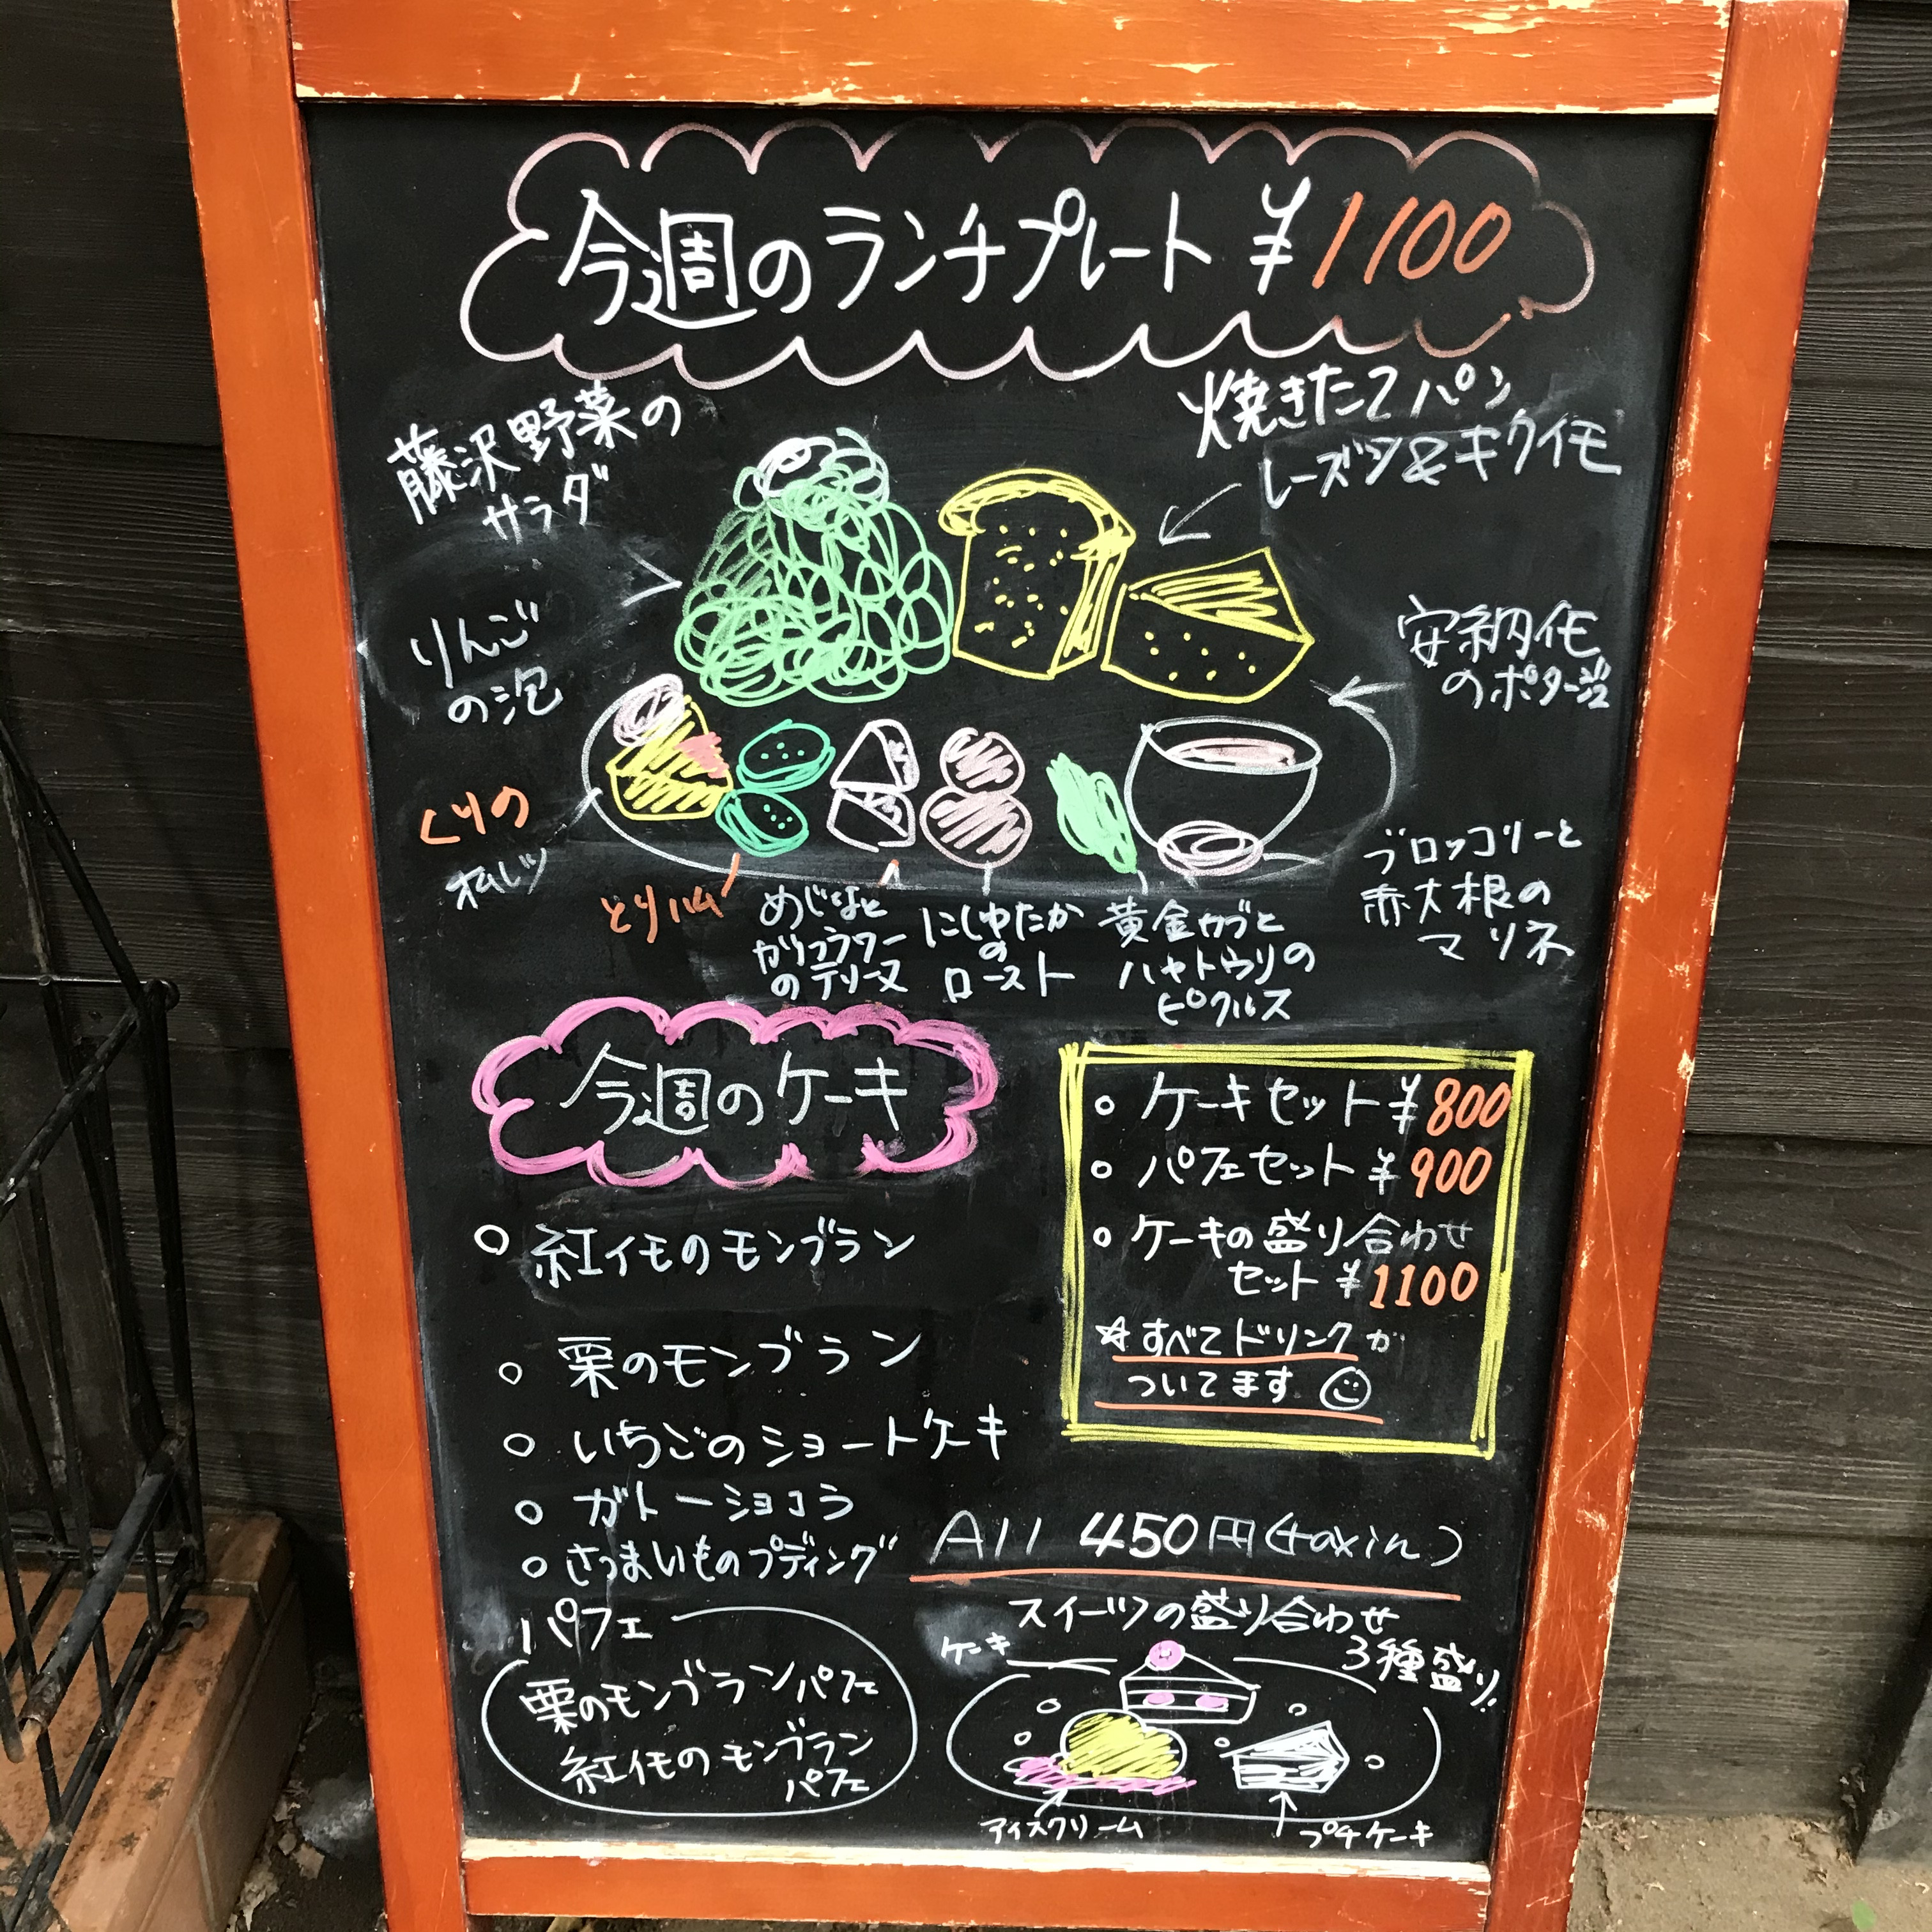 今週のランチプレート ¥1100
藤沢野菜の
サラダ
焼きたてパン
レーズン&キクイモ
りんご
の泡
安納イモ
のポタージュ
くりの
とりハム
めじなと
カリフラワー
のテリーヌ
にしゆたか
の
ロースト
黄金カブと
ハヤトウリの
ピクルス
ブロッコリーと
赤大根の
マリネ
今週のケーキ
○ 紅イモのモンブラン
○ 栗のモンブラン
○ いちごのショートケーキ
○ ガトーショコラ
○ さつまいものプディング
○ ケーキセット ¥800
○ パフェセット ¥900
○ ケーキの盛り合わせ
セット ¥1100
☆すべてドリンクが
ついてます
All 450円(taxin)
パフェ
栗のモンブランパフェ
紅イモのモンブラン
パフェ
スイーツの盛り合わせ
3種盛り!
ケーキ
アイスクリーム
プチケーキ